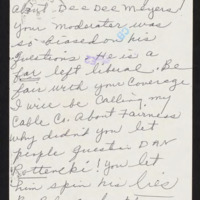 About Dee Dee Myers!
Your moderator was
so biased on his
questions. He is a
far left liberal. Be
fair with your coverage
I will be calling my
Cable Co. About Fairness
why didn't you let
people question DAN
Rottenski! You let
him spin his lies